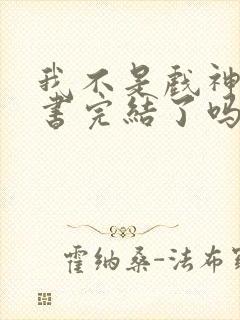 我不是戲神
書完結了吗
霍纳桑-法布